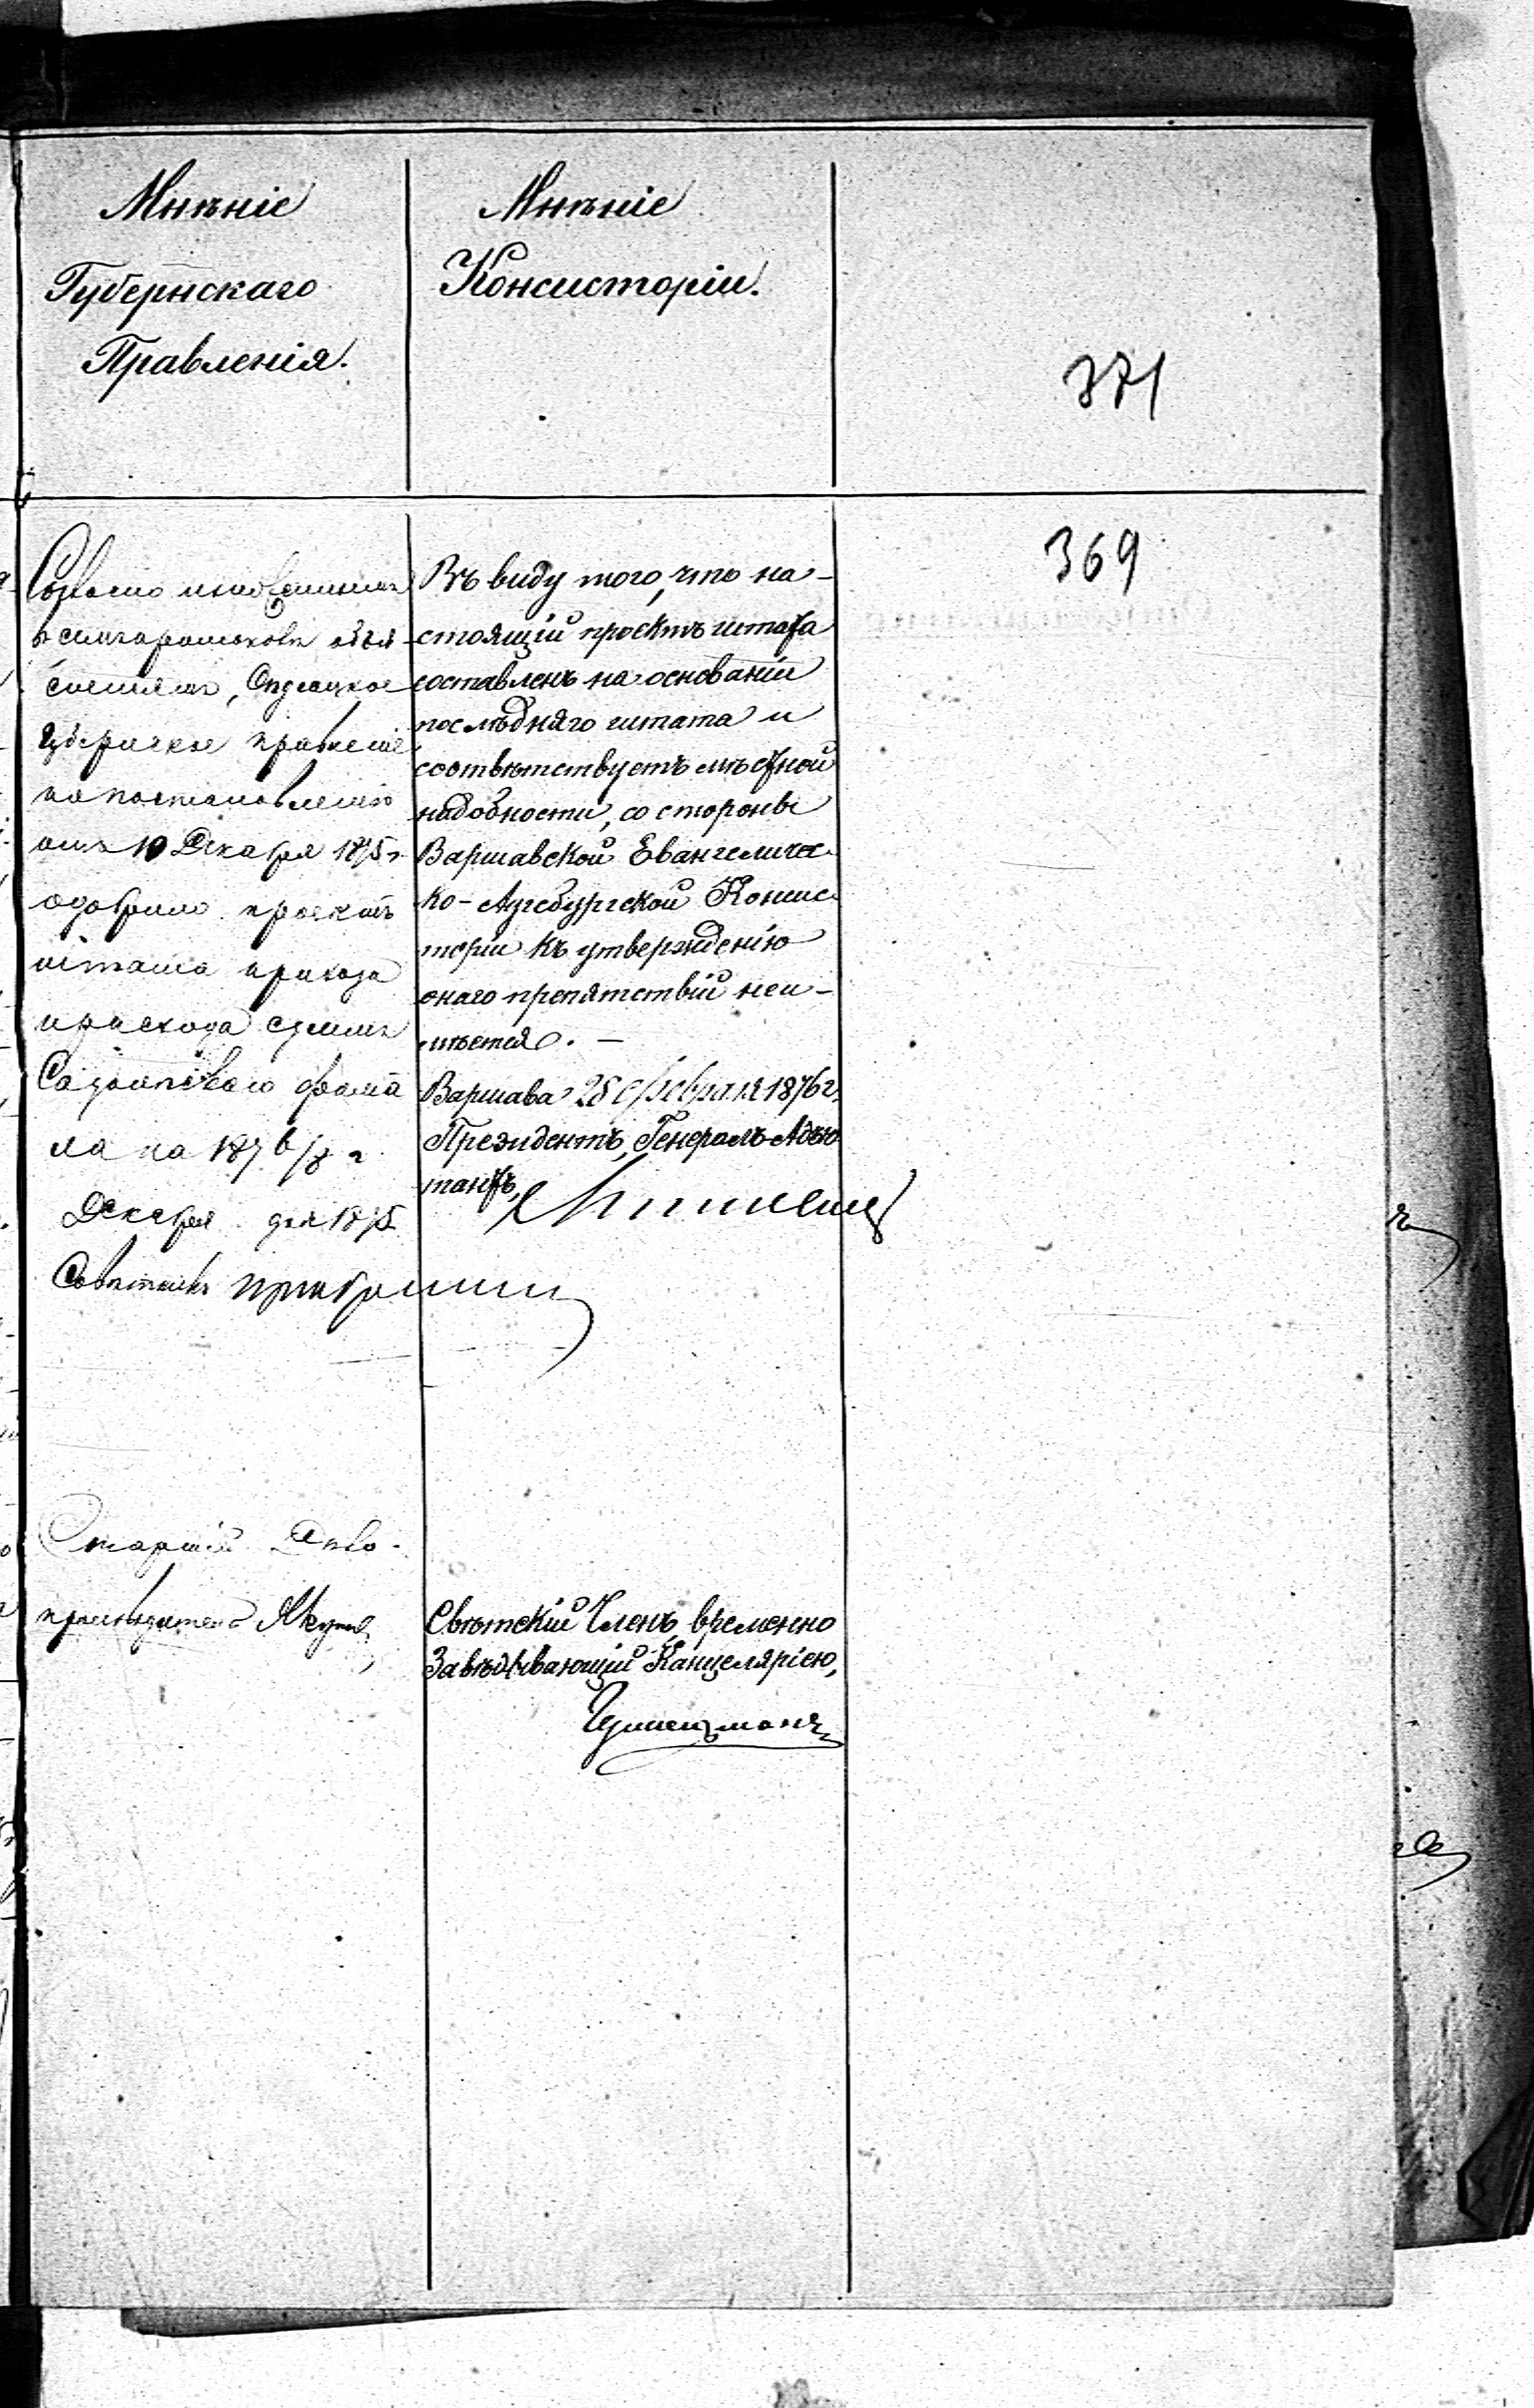 Мнѣніе
Губернскаго
Правленія.
Мнѣніе
Консисторіи.
371
369
Согласно
объя-
сненіямъ,
Губернское Правленіе
по постановленію
отъ 10 Декабря 1875 г.
одобрило проектъ
штата прихода
и расхода суммъ
ла на 1876/8 г.
Декабря дня 1875
Совѣтникъ
Старшій Дѣло-
производитель
Въ виду того, что на-
стоящій проектъ штата
составленъ на основаніи
послѣдняго штата и
соотвѣтствуетъ мѣстной
надобности, со стороны
Варшавской Евангеличес-
ко-Аугсбургской Консис-
торіи къ утвержденію
онаго препятствій неи-
мѣется. —
Варшава 28 Февраля 1876 г.
Президентъ, Генералъ-Адъю
тантъ,
Свѣтскій Членъ, временно
Завѣдывающій Канцеляріею,